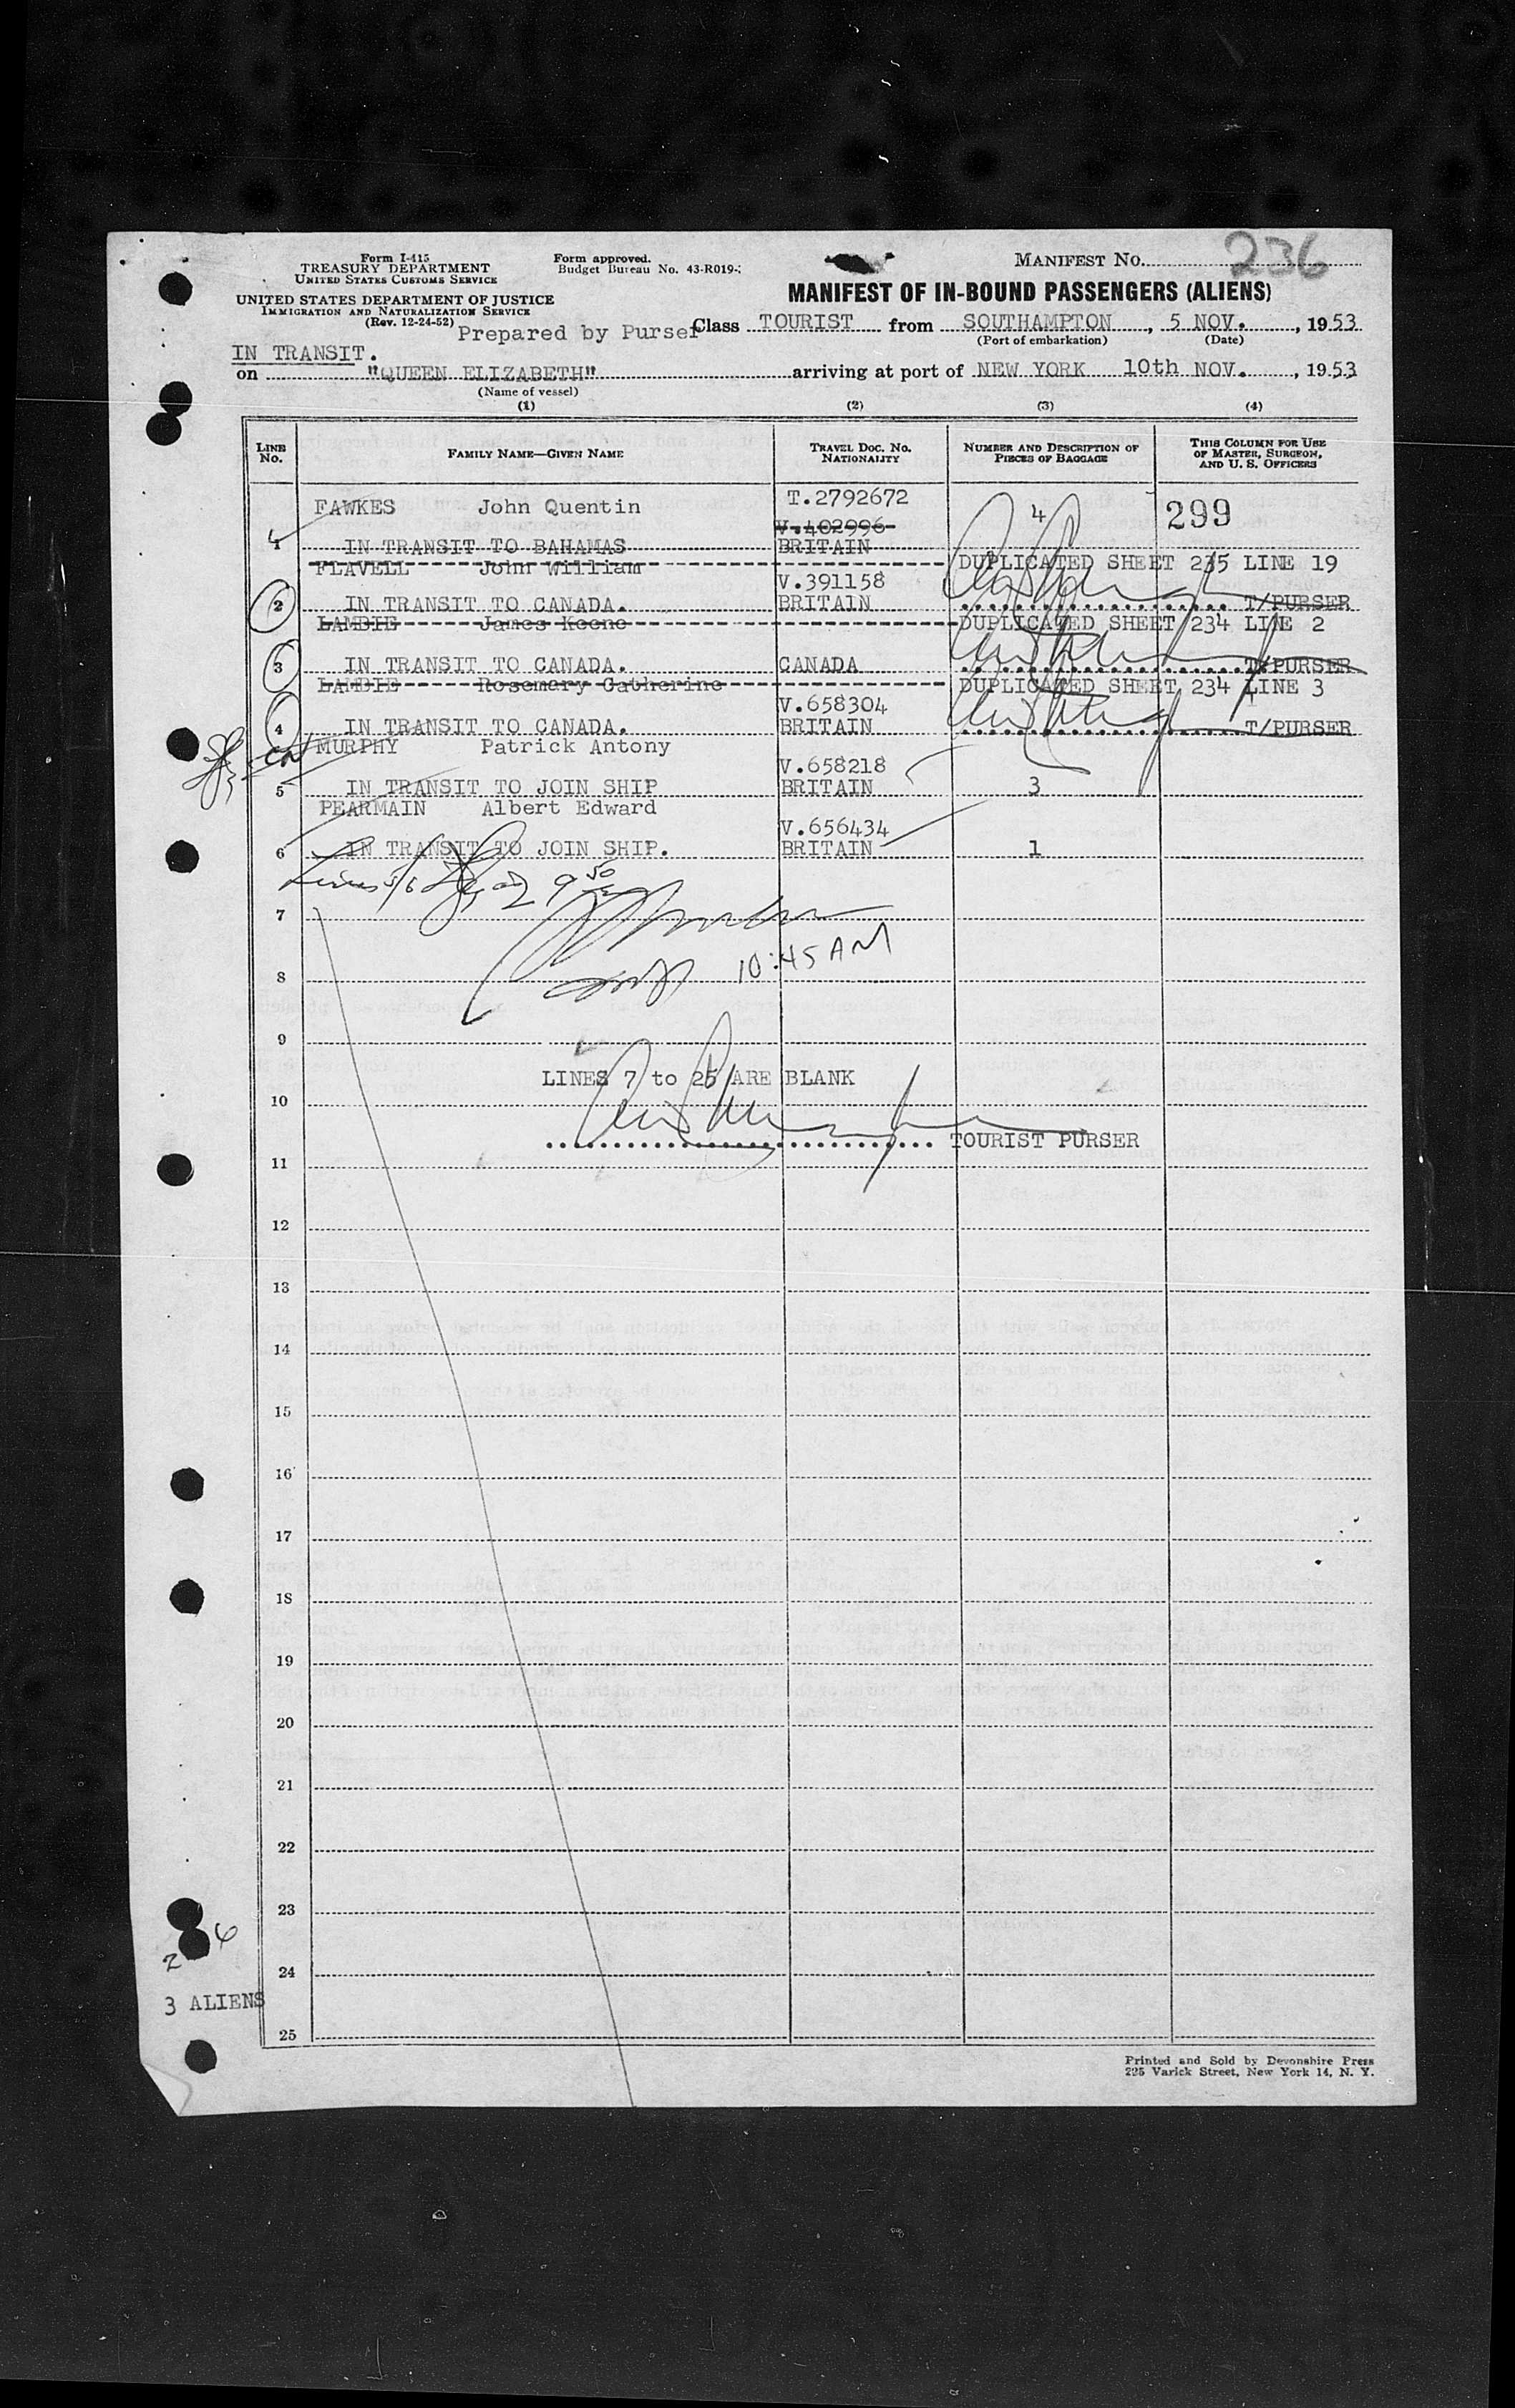 Form I-415
TREASURY DEPARTMENT
UNITED STATES CUSTOMS SERVICE
UNITED STATES DEPARTMENT OF JUSTICE
IMMIGRATION AND NATURALIZATION SERVICE
(Rev. 12-24-52)
Form approved.
Budget Bureau No. 43-R019-
MANIFEST No. 236
MANIFEST OF IN-BOUND PASSENGERS (ALIENS)
Prepared by Purser
Class TOURIST from SOUTHAMPTON, 5 NOV., 1953
(Port of embarkation) (Date)
IN TRANSIT.
on "QUEEN ELIZABETH" arriving at port of NEW YORK 10th NOV., 1953
(Name of vessel)
(1) (2) (3) (4)
LINE No. FAMILY NAME—GIVEN NAME TRAVEL DOC. No. NATIONALITY NUMBER AND DESCRIPTION OF PIECES OF BAGGAGE THIS COLUMN FOR USE OF MASTER, SURGEON, AND U. S. OFFICERS
FAWKES John Quentin T.2792672 4 299
V.402996
1 IN TRANSIT TO BAHAMAS BRITAIN
FLAVELL John William DUPLICATED SHEET 235 LINE 19
V.391158
2 IN TRANSIT TO CANADA. BRITAIN T/PURSER
LAMBIE James Keene DUPLICATED SHEET 234 LINE 2
3 IN TRANSIT TO CANADA. CANADA T/PURSER
LAMBIE Rosemary Catherine DUPLICATED SHEET 234 LINE 3
V.658304
4 IN TRANSIT TO CANADA. BRITAIN T/PURSER
MURPHY Patrick Antony
V.658218
5 IN TRANSIT TO JOIN SHIP BRITAIN 3
PEARMAIN Albert Edward
V.656434
6 IN TRANSIT TO JOIN SHIP. BRITAIN 1
Lines 5/6 9 50
7
10:45 AM
8
9
LINES 7 to 25 ARE BLANK
10
TOURIST PURSER
11
12
13
14
15
16
17
18
19
20
21
22
23
24
25
2 6
3 ALIENS
Printed and Sold by Devonshire Press
225 Varick Street, New York 14, N. Y.